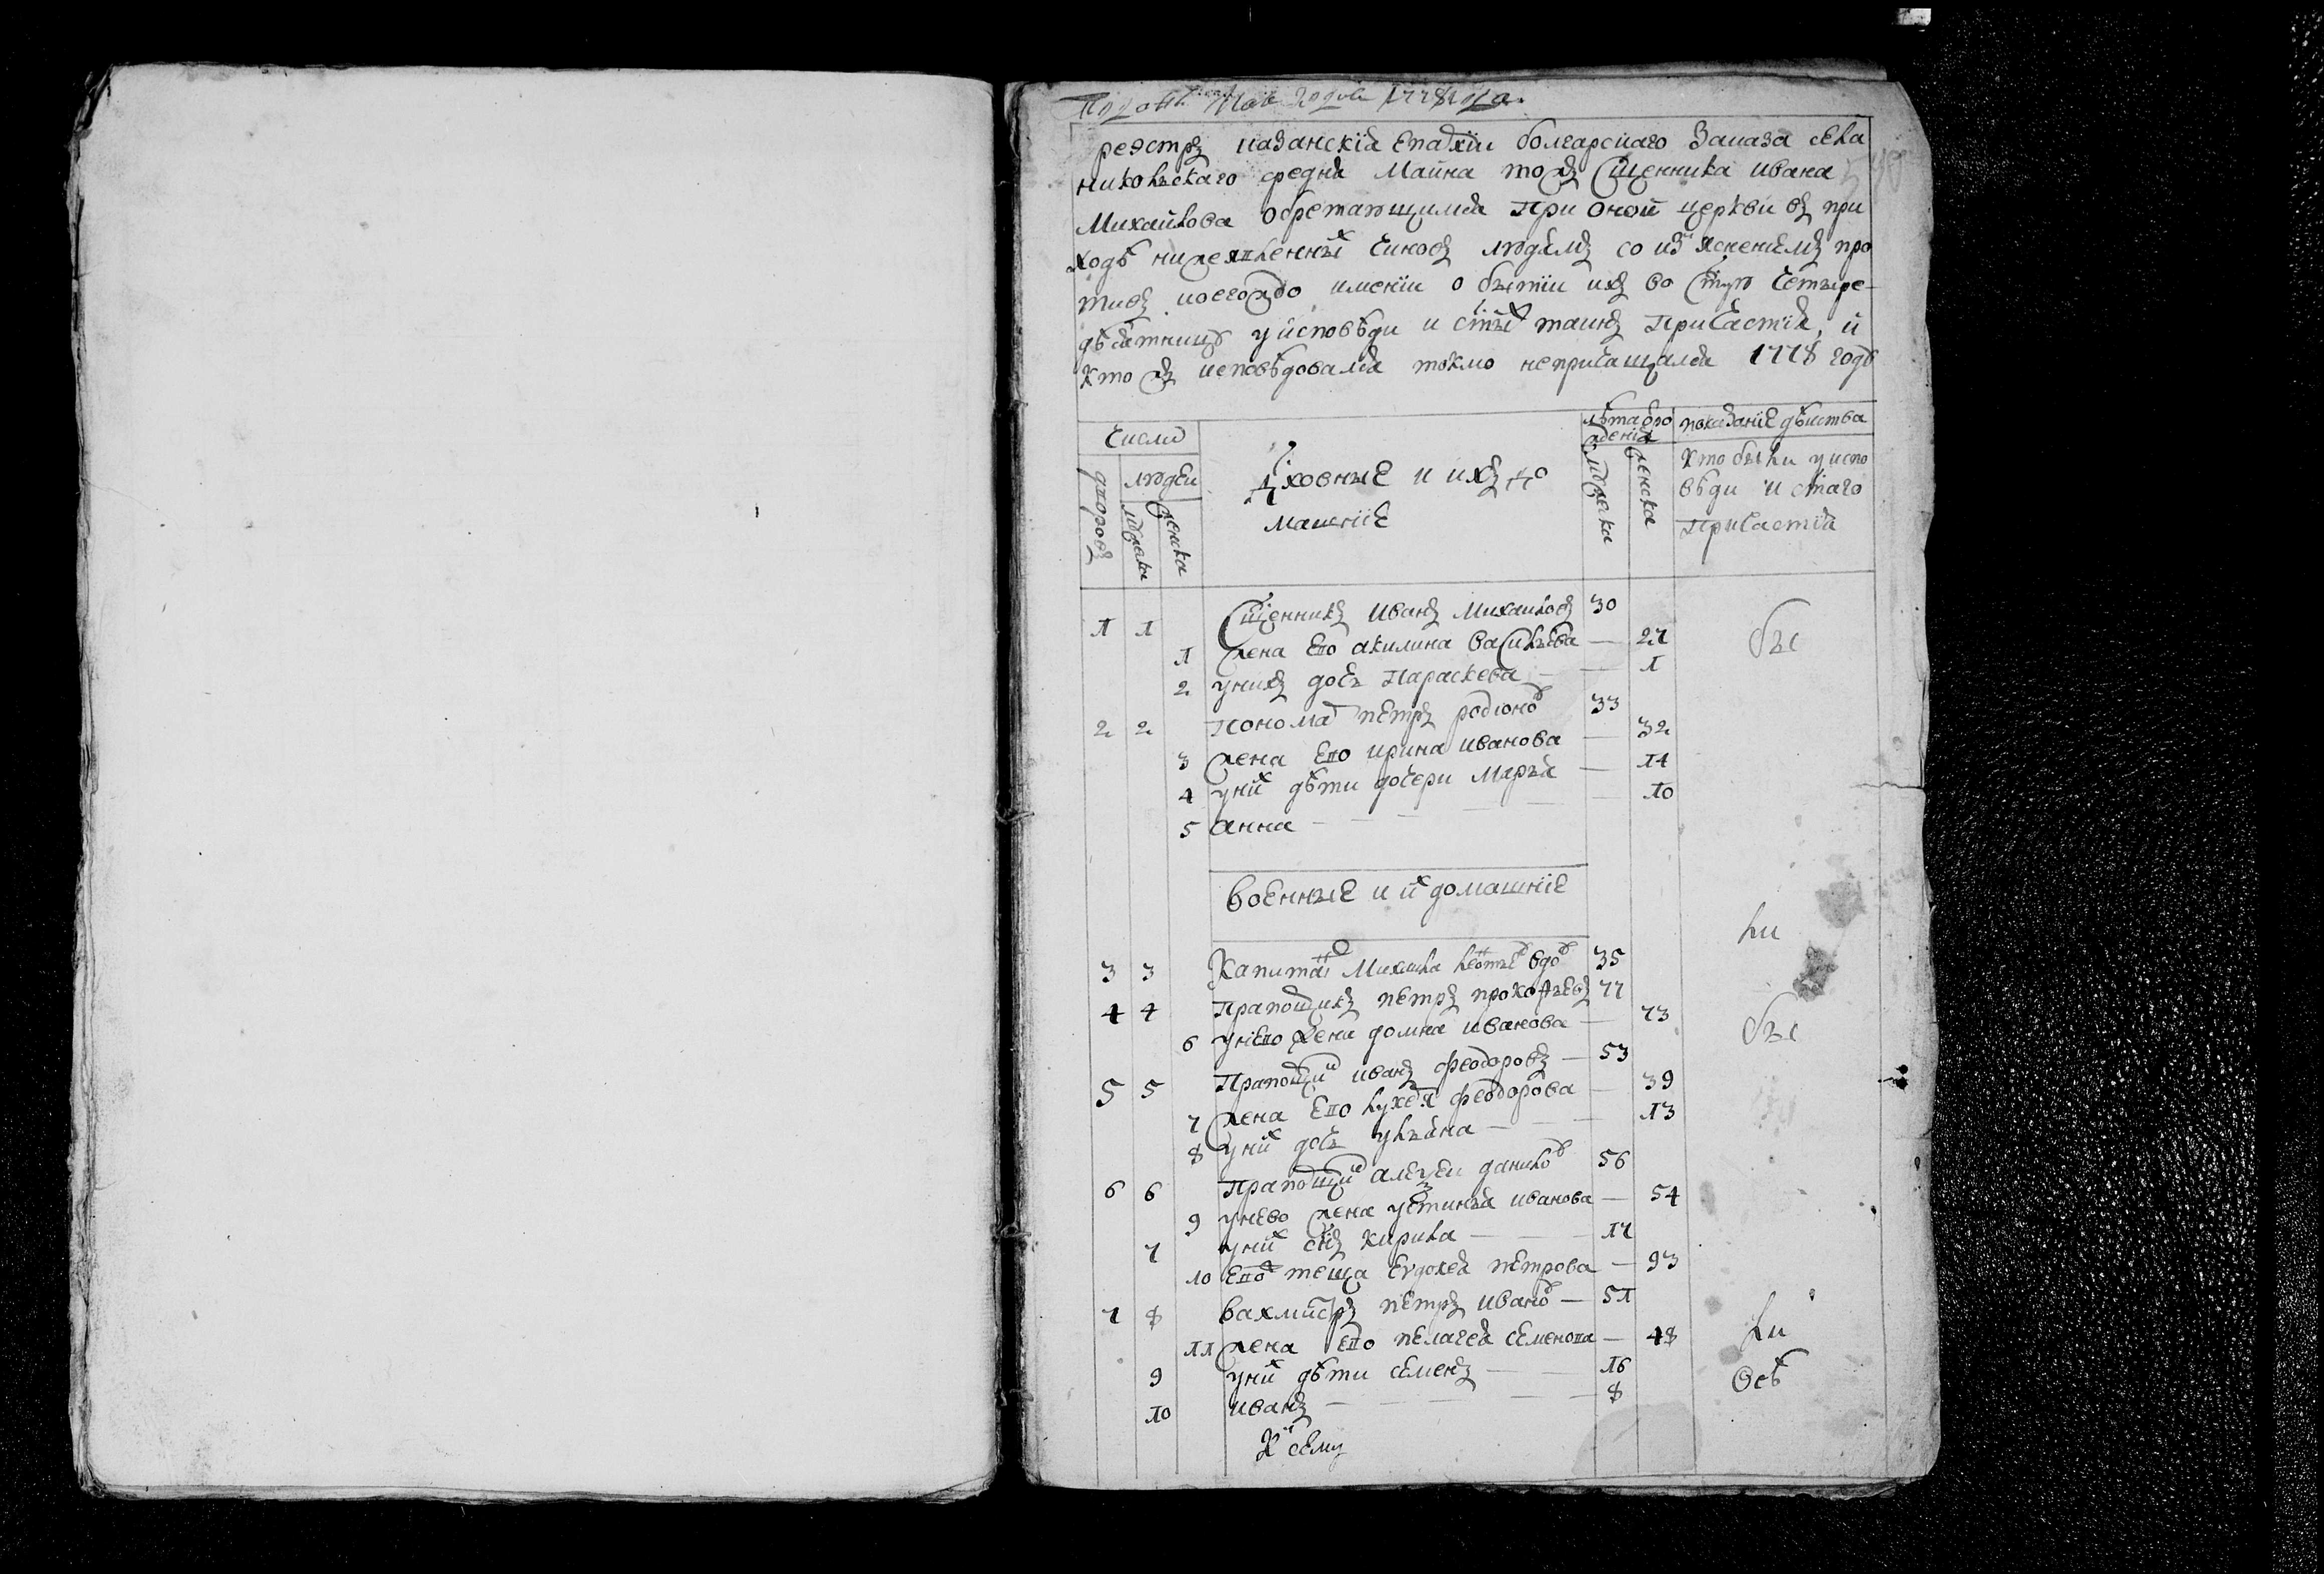 1778 года
реэстръ казанскїя Епархїи болгарскаго Заказа села
никольскаго средня Майна тожъ Сщенника ивана
Михайлова обретающимся При оной церкви въ при
ходѣ нижеявленныхъ чиновъ людемъ со изъяснениемъ про
тивъ коегождо имени о бытии ихъ во Стую Четыре
дѣсятницу у исповѣди и стыхъ таинъ Причастия, и
кто жъ исповѣдовался токмо непричащался 1778 годъ
Число
людеи
дворовъ
мужеска
женска
Дховные и ихъ до
машние
лѣта от ро
ждения
мужеска
женска
показание дѣиства
Кто были у испо
вѣди и стаго
Причастия
1 1 Сщенникъ иванъ михаиловъ 30
1 жена Ево акилина васильева — 27 бы
2 у нихъ дочь Параскева — 1
2 2 Пономарь петръ родионов 33
3 жена Ево ирина иванова — 32
4 у них дѣти дочери Марья — 11
5 анна — 10
Военные и их домашние
ли
3 3 Капитан Михаила вдов 35
4 4 Прапощикъ петръ прокофьевъ 77
6 у нево жена домна иванова — 73 бы
5 5 Прапощик иванъ феодоровъ — 53
7 жена Ево лукерья феодорова — 39
8 у них дочь ульяна — 13
6 6 Прапощик алеѯеи данилов 56
9 у нево жена устинья иванова — 54
7 у них снъ кирила — 17
10 Ево теща Евдокея петрова — 93
7 8 вахмистръ петръ иванов — 51
11 жена Ево пелагея семенова — 48 ли
9 у них дѣти семенъ — 16
10 иванъ — 8 Всѣ
К сему